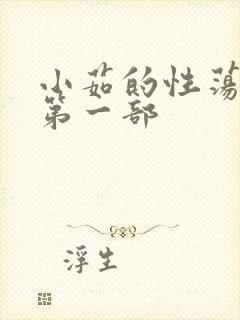 小茹的性荡
第一部
浮生